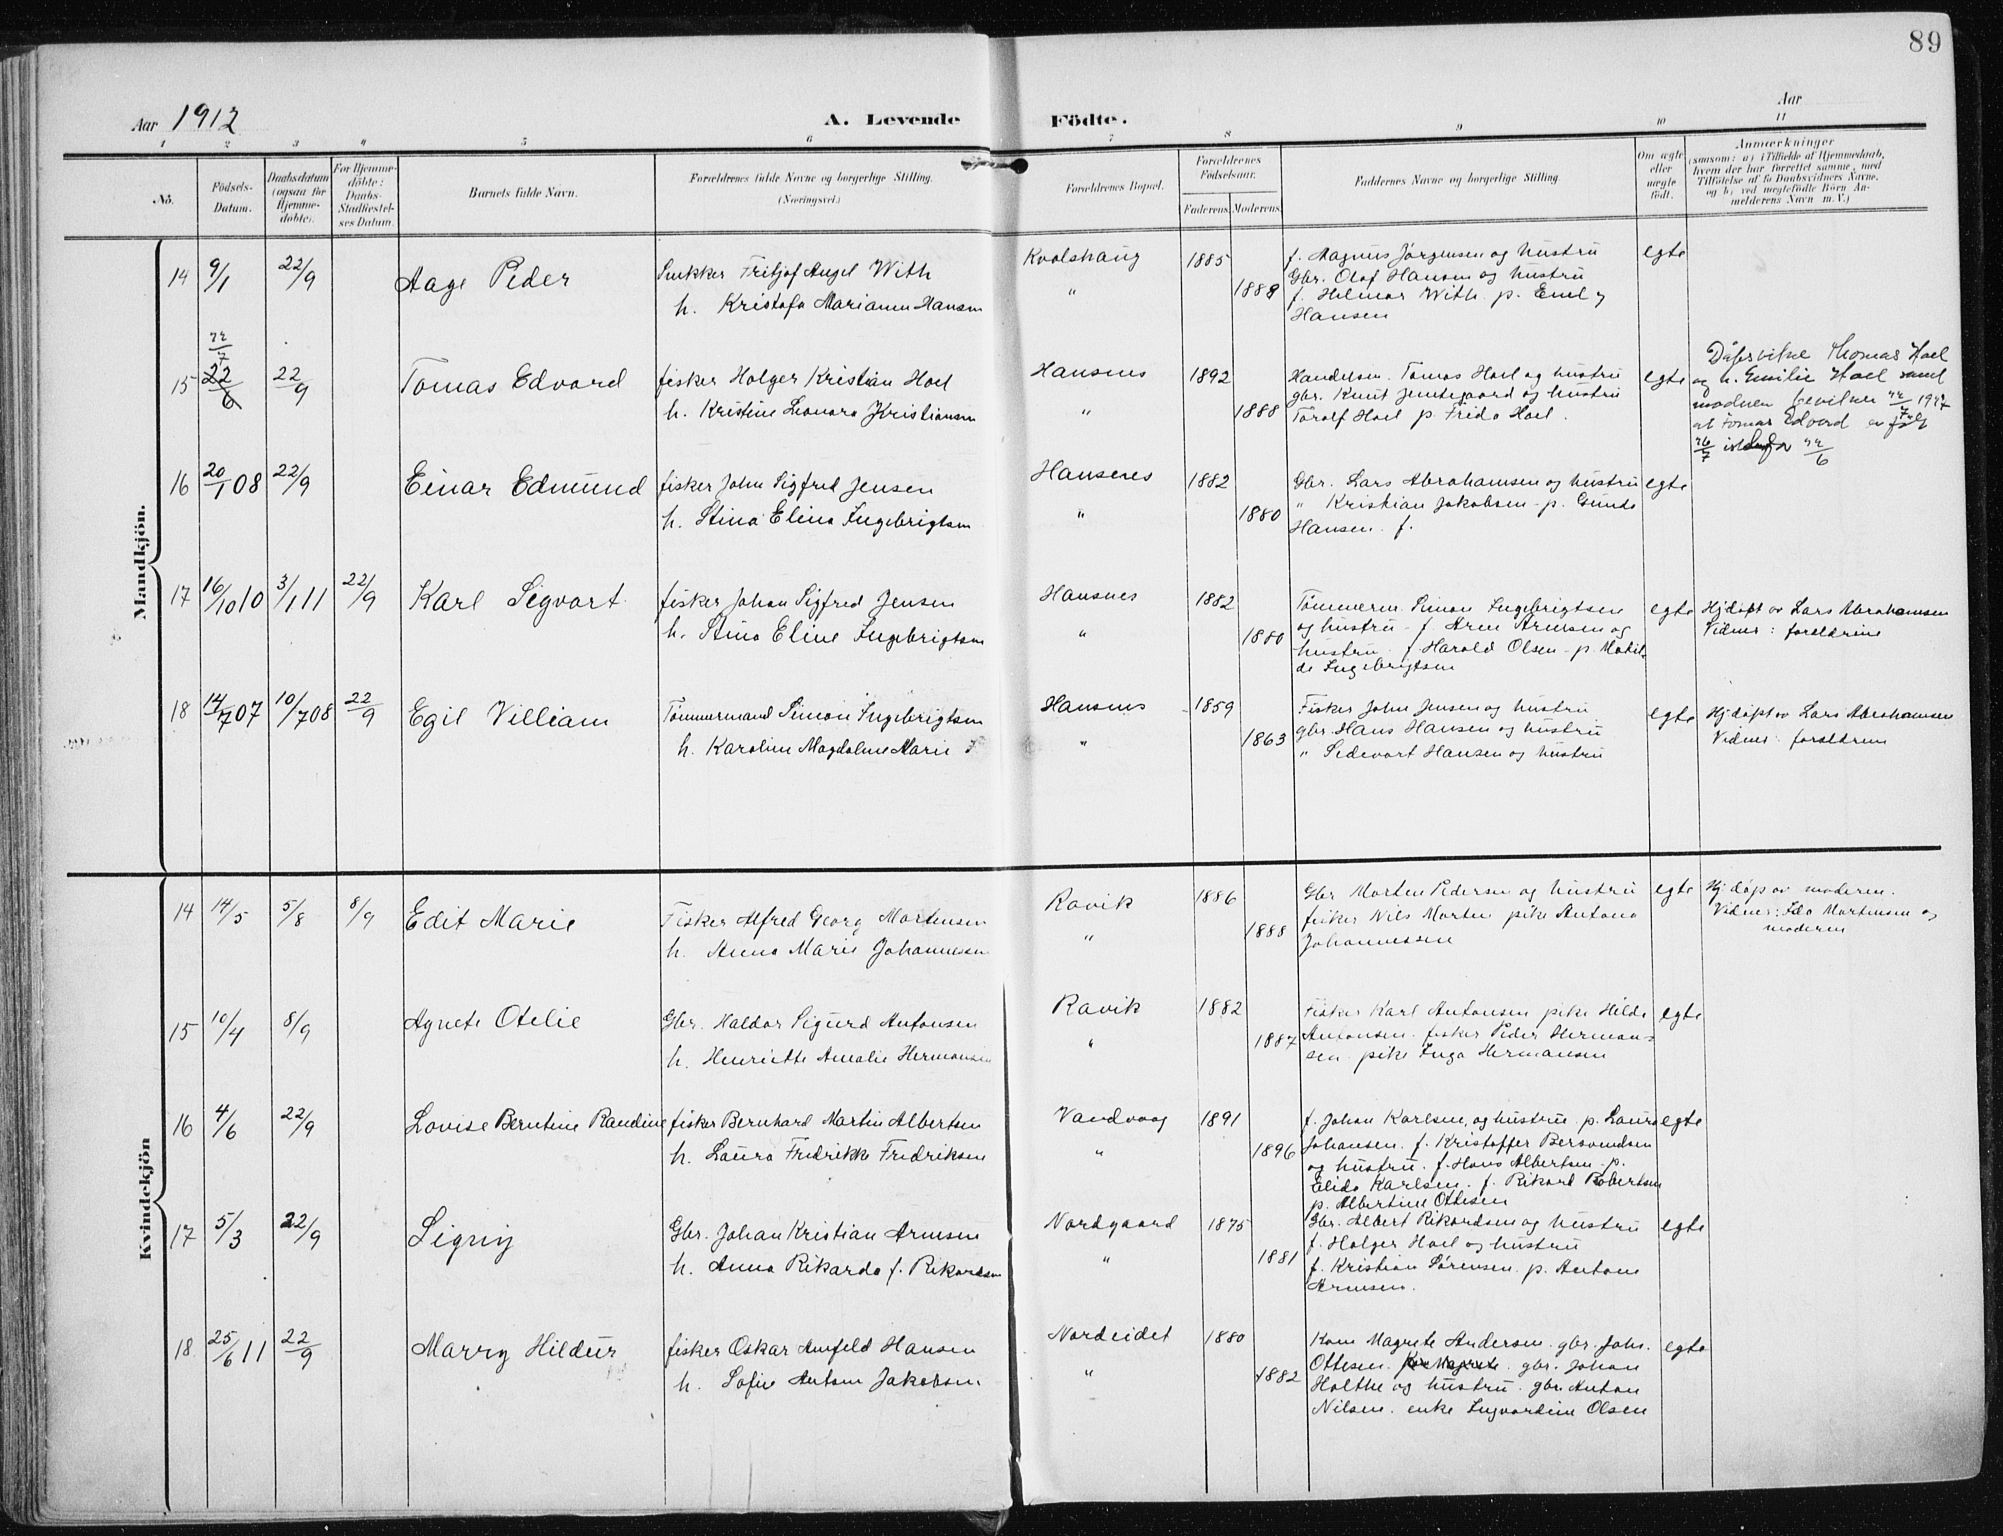 89
Aar 1912 A. Levende Födte. Aar
1 2 3 4 5 6 7 8 9 10 11
No. Födsels-Datum. Daabsdatum (ogsaa for Hjemmedöbte). For Hjemmedöbte: Daabs-Stadfæstelses Datum. Barnets fulde Navn. Forældrenes fulde Navne og borgerlige Stilling. (Næringsvei.) Forældrenes Bopæl. Forældrenes Födselsaar. Faderens. Moderens. Faddernes Navne og borgerlige Stilling. Om ægte eller uægte født. Anmærkninger (saasom: a) i Tilfælde af Hjemmedaab, hvem der har forrettet samme, med Tilföielse af to Daabsvidners Navne, og b) ved uægtefödte Börn Anmelderens Navn m. V.)
Mandkjön.
14 9/1 22/9 Aage Peder Snekker Fritjof Angel With Kvalshaug 1885 f. Magnus Jørgensen og hustru egte
h. Kristofa Marianna Hansen " 1888 Gbr. Olaf Hansen og hustru
f. Helmar With. p. Emely
Hansen
22/7
15 22/6 22/9 Tomas Edvard fisker Holger Kristian Hoel Hansnes 1892 Handelsm. Tomas Hoel og hustru egte
h. Kristine Leonara Kristiansen " 1888 gbr. Knut Jentegaard og hustru
Toralf Hoel p. Frida Hoel.
Dåpsvitne Thomas Hoel
og h. Emilie Hoel samt
moderen bevitner 22/7 19
at Tomas Edvard er født
22/7 istedenfor 22/6
16 20/1 08 22/9 Einar Edmund fisker John Sigfred Jensen Hansnes 1882 Gbr. Lars Abrahamsen og hustru egte
h. Stina Elina Ingebrigtsen " 1880 " Kristian Jakobsen - p. Gunda
Hansen. f.
17 16/10 10 3/1 11 22/9 Karl Sigvart fisker Johan Sigfred Jensen Hansnes 1882 Tømmerm. Simon Ingebrigtsen egte Hjdøpt av Lars Abrahamsen
h. Stina Eline Ingebrigtsen " 1880 og hustru - f. Arne Arnesen og Vidner: forældrene
hustru. f. Harald Olsen - p. Matil-
de Ingebrigtsen
18 14/7 07 10/7 08 22/9 Egil Villiam Tømmermand Simon Ingebrigtsen Hansnes 1859 Fisker John Jensen og hustru egte Hjdøpt av Lars Abrahamsen
h. Karoline Magdalene Marie " 1863 gbr. Hans Hansen og hustru Vidner: forældrene
" Sedevart Hansen og hustru
Kvindekjön
14 14/5 5/8 8/9 Edit Marie Fisker Alfred Georg Mortensen Ravik 1886 Gbr Morten Pedersen og hustru egte Hjdøp av moderen.
h. Anna Marie Johannessen " 1888 fisker Nils Morten pike Antona Vidner: Ida Mortensen og
Johannessen moderen
15 10/4 8/9 Agnete Otelie Gbr. Haldor Sigurd Antonsen Ravik 1882 Fisker Karl Antonsen pike Hilda egte
h. Henriette Amalie Hermansen " 1887 Antonsen. fisker Peder Herman-
sen. pike Inga Hermansen
16 4/6 22/9 Lovise Berntine Randine fisker Bernhard Martin Albertsen Vandvaag 1891 f. Johan Karlsen, og hustru p. Laura egte
h. Laura Fredrikke Fredriksen " 1896 Johansen. f. Kristoffer Bersvendsen
og hustru. f. Hans Albertsen - p.
Elida Karlsen. f. Rikard Robertsen
p. Albertine Ottesen
17 5/3 22/9 Signy Gbr. Johan Kristian Arnesen Nordgaard 1875 Gbr. Albert Rikardsen og hustru egte
h. Anna Rikarda f. Rikardsen " 1881 f. Holger Hoel og hustru
f. Kristian Sørensen. p. Antone
Arnesen.
18 25/6 11 22/9 Marry Hildur fisker Oskar Arnfeld Hansen Nordeidet 1880 Kone Magrete Andersen. gbr. Johs. egte
h. Sofie Antone Jakobsen " 1882 Ottesen. Kone Magrete. gbr. Johan
Holthe og hustru. gbr. Anton
Nilsen. enke Ingvardine Olsen